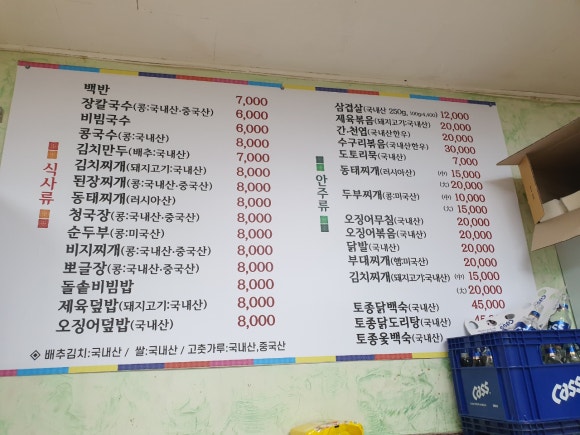 식사류
백반 7,000
장칼국수(콩:국내산·중국산) 6,000
비빔국수 6,000
콩국수(콩:국내산) 8,000
김치만두(배추:국내산) 8,000
김치찌개(돼지고기:국내산) 8,000
된장찌개(콩:국내산·중국산) 8,000
동태찌개(러시아산) 8,000
청국장(콩:국내산·중국산) 8,000
순두부(콩:미국산) 8,000
비지찌개(콩:국내산·중국산) 8,000
뽀글장(콩:국내산·중국산) 8,000
돌솥비빔밥 8,000
제육덮밥(돼지고기:국내산) 8,000
오징어덮밥(국내산) 8,000
◈ 배추김치:국내산 / 쌀:국내산 / 고춧가루:국내산,중국산
안주류
삼겹살(국내산 250g, 100g/4,800) 12,000
제육볶음(돼지고기:국내산) 20,000
간.천엽(국내산한우) 20,000
수구리볶음(국내산한우) 30,000
도토리묵(국내산) 7,000
동태찌개(러시아산) (中) 15,000
(大) 20,000
두부찌개(콩:미국산) (中) 10,000
(大) 15,000
오징어무침(국내산) 20,000
오징어볶음(국내산) 20,000
닭발(국내산) 20,000
부대찌개(햄:미국산) 20,000
김치찌개(돼지고기:국내산) (中) 15,000
(大) 20,000
토종닭백숙(국내산) 45,000
토종닭도리탕(국내산)
토종옻백숙(국내산)
Cass
Cass